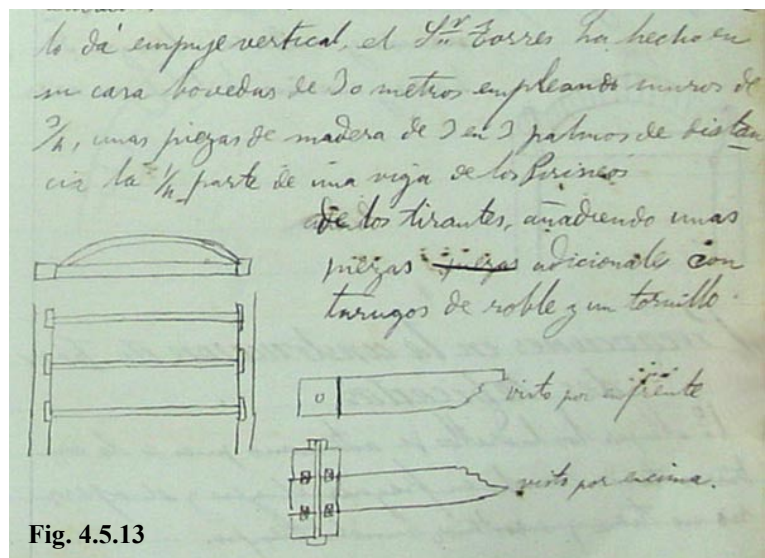 lo dá empuje vertical, el Sr Torres ha hecho en
su casa bovedas de 30 metros empleando muros de
3/4, unas piezas de madera de 3 en 3 palmos de distan
cia la 1/4 parte de una viga de los Pirineos
de los tirantes, añadiendo unas
piezas piezas adicionales con
tarugos de roble y un tornillo.
visto por enfrente
visto por encima.
Fig. 4.5.13